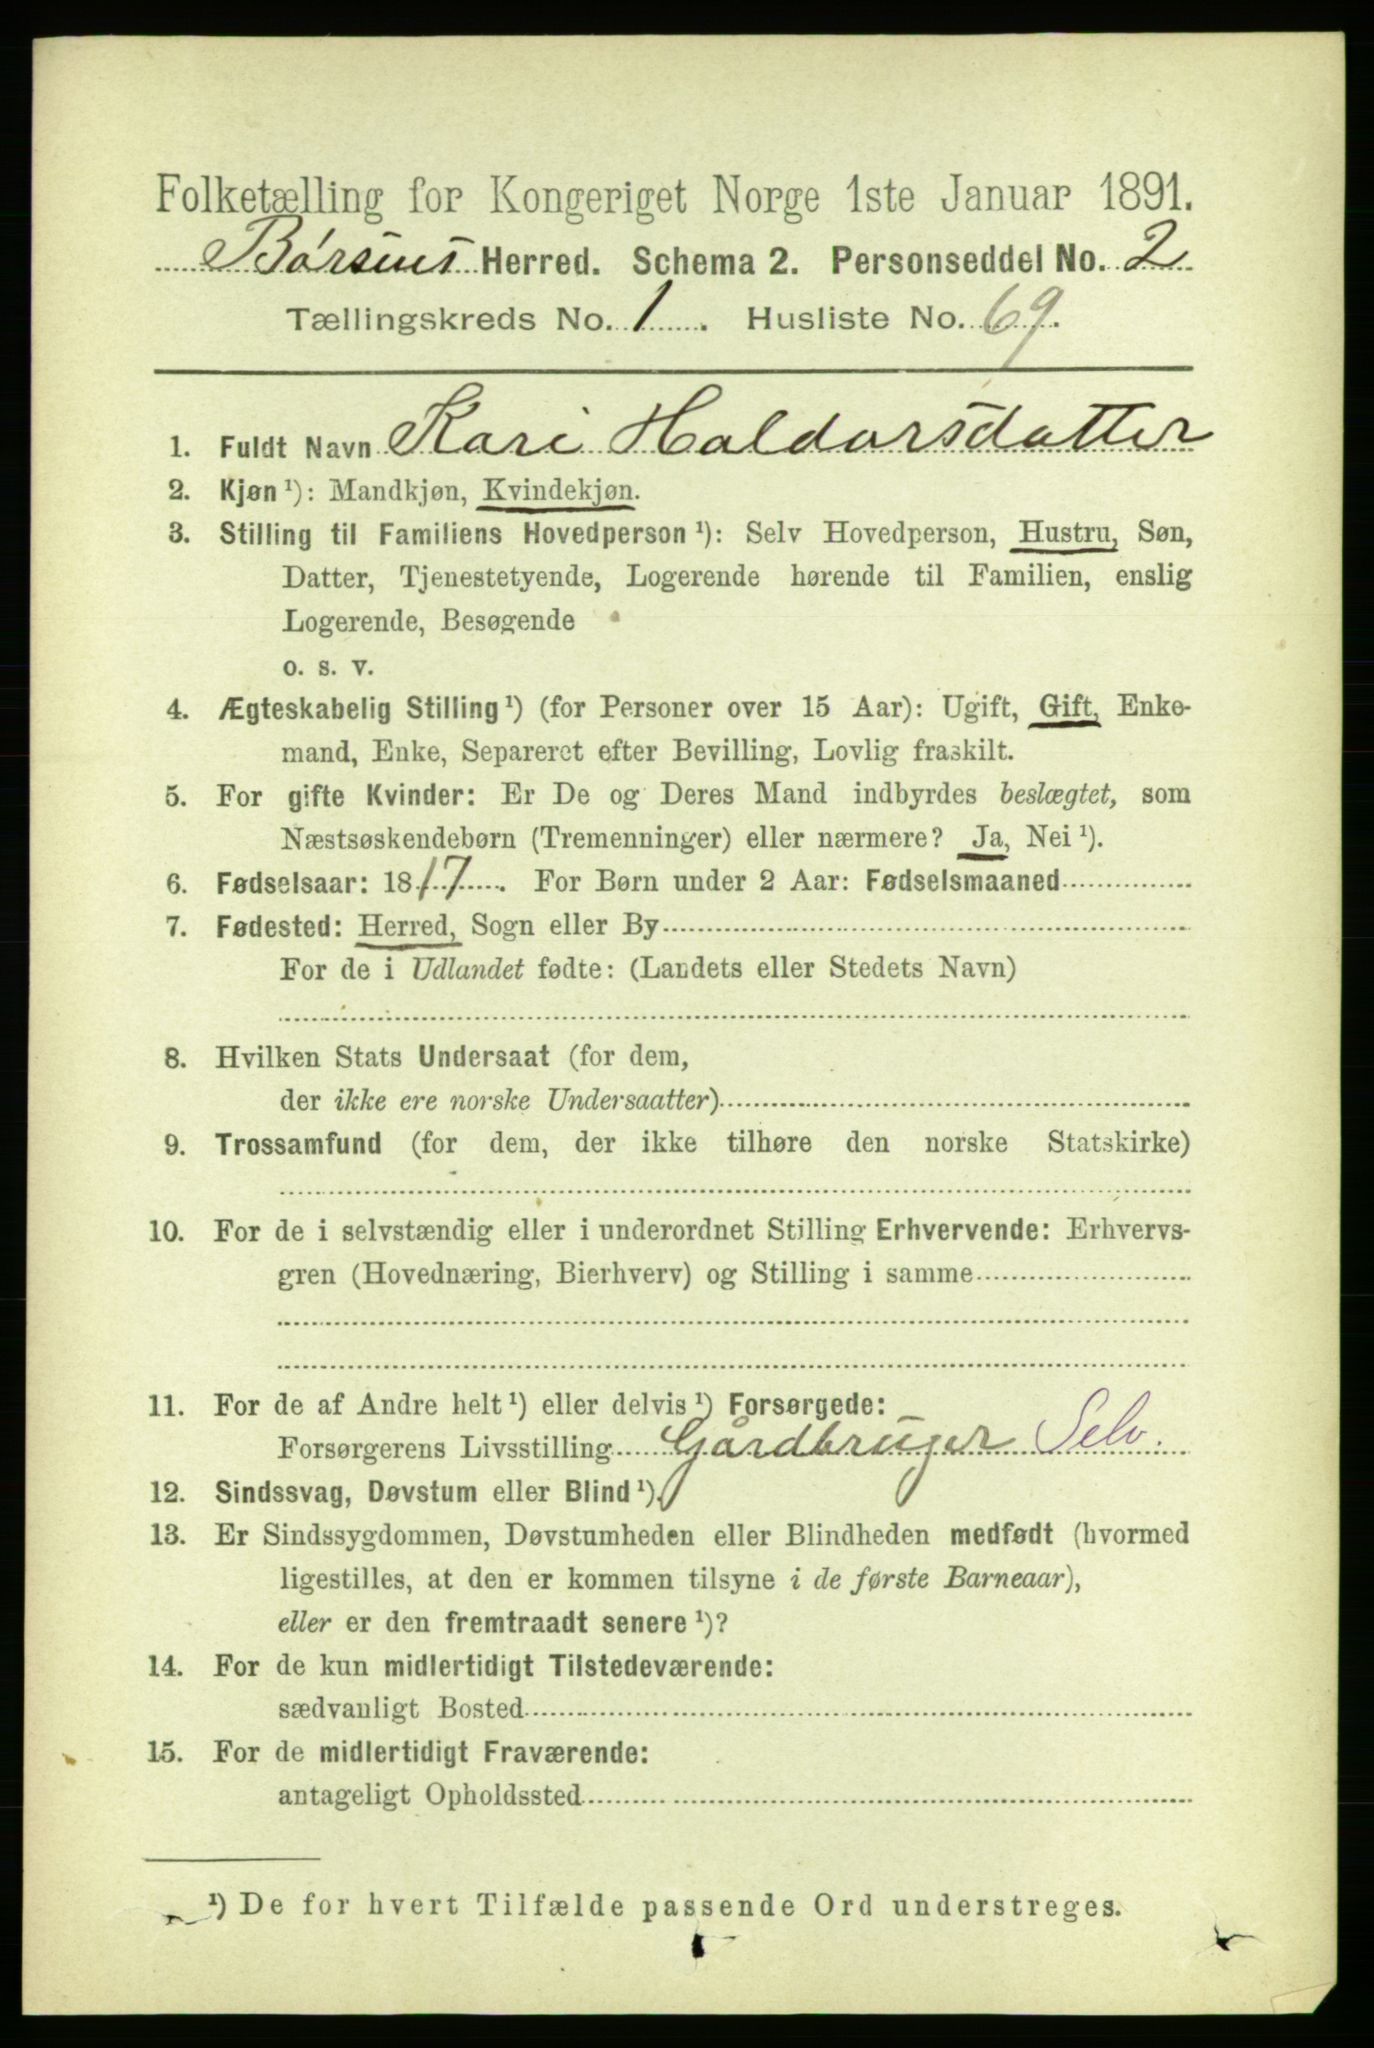 Folketælling for Kongeriget Norge 1ste Januar 1891.
Børsens Herred. Schema 2. Personseddel No. 2
Tællingskreds No. 1. Husliste No. 69.
1. Fuldt Navn Kari Haldorsdatter
2. Kjøn ¹): Mandkjøn, Kvindekjøn.
3. Stilling til Familiens Hovedperson ¹): Selv Hovedperson, Hustru, Søn,
Datter, Tjenestetyende, Logerende hørende til Familien, enslig
Logerende, Besøgende
o. s. v.
4. Ægteskabelig Stilling ¹) (for Personer over 15 Aar): Ugift, Gift, Enke-
mand, Enke, Separeret efter Bevilling, Lovlig fraskilt.
5. For gifte Kvinder: Er De og Deres Mand indbyrdes beslægtet, som
Næstsøskendebørn (Tremenninger) eller nærmere? Ja, Nei ¹).
6. Fødselsaar: 1817. For Børn under 2 Aar: Fødselsmaaned
7. Fødested: Herred, Sogn eller By
For de i Udlandet fødte: (Landets eller Stedets Navn)
8. Hvilken Stats Undersaat (for dem,
der ikke ere norske Undersaatter)
9. Trossamfund (for dem, der ikke tilhøre den norske Statskirke)
10. For de i selvstændig eller i underordnet Stilling Erhvervende: Erhvervs-
gren (Hovednæring, Bierhverv) og Stilling i samme
11. For de af Andre helt ¹) eller delvis ¹) Forsørgede:
Forsørgerens Livsstilling Gårdbruger Selv.
12. Sindssvag, Døvstum eller Blind ¹).
13. Er Sindssygdommen, Døvstumheden eller Blindheden medfødt (hvormed
ligestilles, at den er kommen tilsyne i de første Barneaar),
eller er den fremtraadt senere ¹)?
14. For de kun midlertidigt Tilstedeværende:
sædvanligt Bosted
15. For de midlertidigt Fraværende:
antageligt Opholdssted
¹) De for hvert Tilfælde passende Ord understreges.